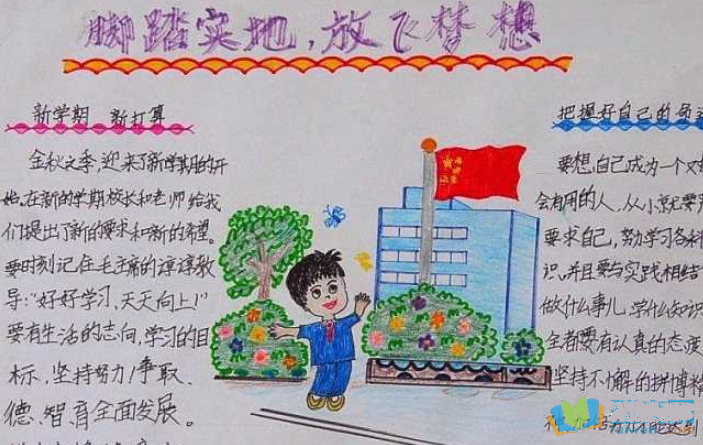 脚踏实地，放飞梦想
新学期 新打算
金秋之季，迎来了新学期的开
始。在新的学期校长和老师给我
们提出了新的要求和新的希望。
要时刻记住毛主席的谆谆教
导：“好好学习、天天向上！”
要有生活的志向，学习的目
标，坚持努力！争取、
德、智、育全面发展。
把握好自己的
要想，自己成为一个对
会有用的人，从小就要
要求自己，努力学习各科
识。并且要与实践相结
做什么事儿，学什么知识
全都要有认真的态度
坚持不懈的拼博精